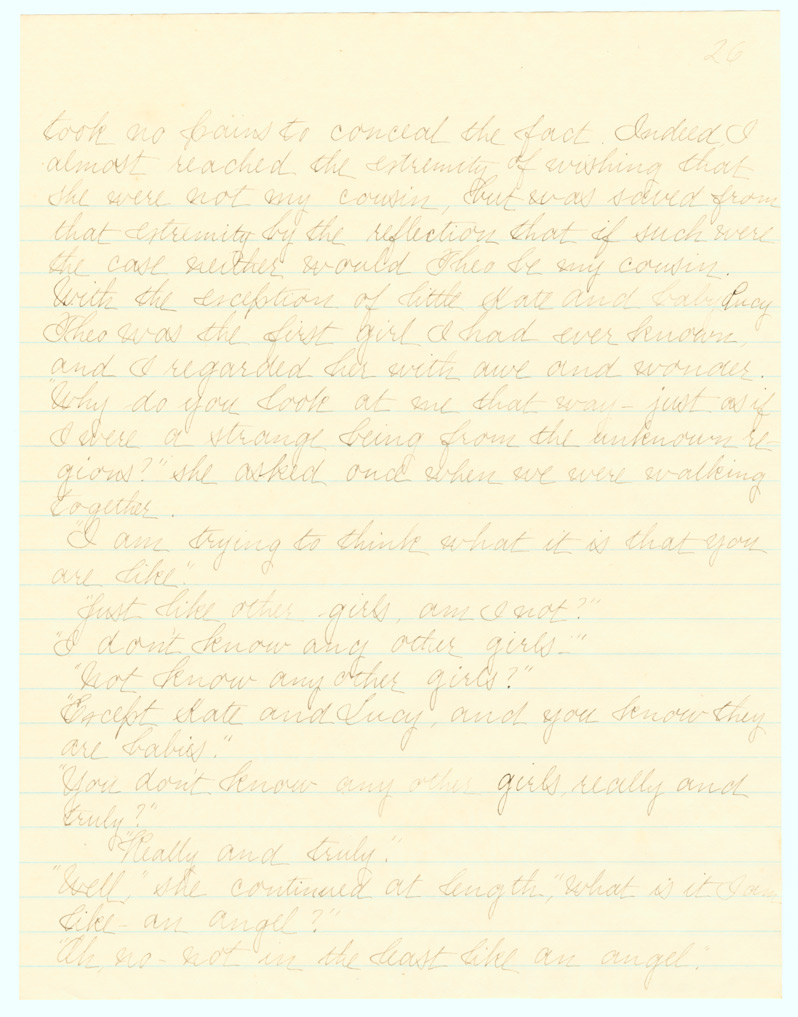 26
took no pains to conceal the fact. Indeed, I
almost reached the extremity of wishing that
she were not my cousin, but was saved from
that extremity by the reflection that if such were
the case neither would Theo be my cousin.
With the exception of little Kate and baby Lucy
Theo was the first girl I had ever known,
and I regarded her with awe and wonder.
"Why do you look at me that way - just as if
I were a strange being from the unknown re-
gions?" she asked once when we were walking
together.
"I am trying to think what it is that you
are like."
"Just like other girls, am I not?"
"I don't know any other girls -"
"Not know any other girls?"
"Except Kate and Lucy, and you know they
are babies."
"You don't know any other girls, really and
truly?"
"Really and truly."
"Well," she continued at length, "what is it I am
like - an angel?"
"Oh, no - not in the least like an angel."